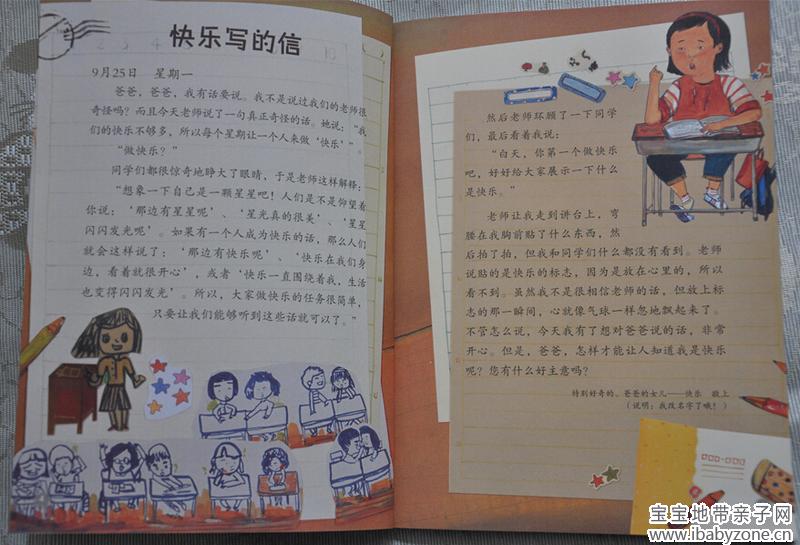 快乐写的信
9月25日 星期一
爸爸，爸爸，我有话要说。我不是说过我们的老师很
奇怪吗？而且今天老师说了一句真正奇怪的话。她说：“我
们的快乐不够多，所以每个星期让一个人来做‘快乐’”。
“做快乐？”
同学们都很惊奇地睁大了眼睛，于是老师这样解释：
“想象一下自己是一颗星星吧！人们是不是仰望着
你说：‘那边有星星呢’、‘星光真的很美’、‘星星
闪闪发光呢’。如果有一个人成为快乐的话，那么人们
就会这样说了：‘那边有快乐呢’、‘快乐在我们身
边，看着就很开心’，或者‘快乐一直围绕着我，生活
也变得闪闪发光’。所以，大家做快乐的任务很简单，
只要让我们能够听到这些话就可以了。”
然后老师环顾了一下同学
们，最后看着我说：
“白天，你第一个做快乐
吧，好好给大家展示一下什么
是快乐。”
老师让我走到讲台上，弯
腰在我胸前贴了什么东西，然
后拍了拍，但我和同学们什么都没有看到。老师
说贴的是快乐的标志，因为是放在心里的，所以
看不到。虽然我不是很相信老师的话，但放上标
志的那一瞬间，心就像气球一样忽地飘起来了。
不管怎么说，今天我有了想对爸爸说的话，非常
开心。但是，爸爸，怎样才能让人知道我是快乐
呢？您有什么好主意吗？
特别好奇的、爸爸的女儿——快乐 敬上
（说明：我改名字了哦！）
宝宝地带亲子网
www.ibabyzone.cn